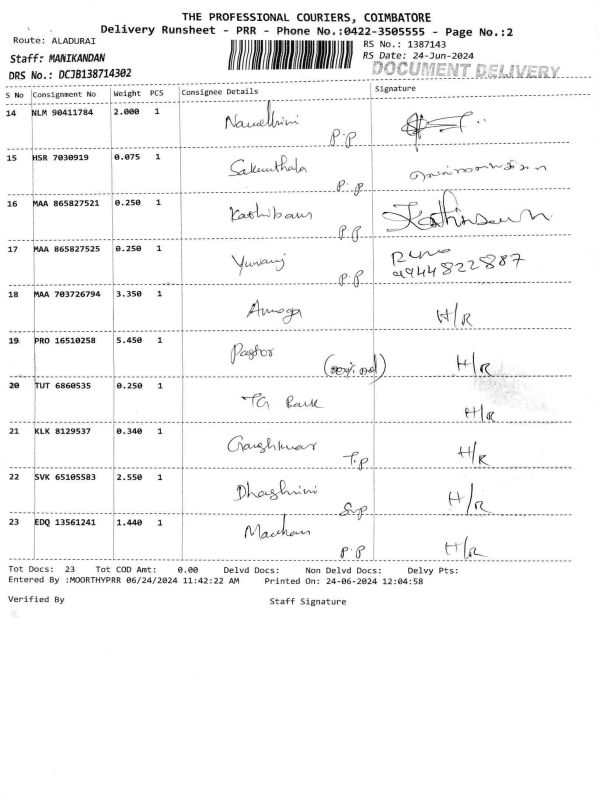 THE PROFESSIONAL COURIERS, COIMBATORE
Delivery Runsheet - PRR - Phone No.:0422-3505555 - Page No.:2
Route: ALADURAI
RS No.: 1387143
Staff: MANIKANDAN
RS Date: 24-Jun-2024
DRS No.: DCJB138714302
DOCUMENT DELIVERY
S No Consignment No Weight PCS Consignee Details Signature
14 NLM 90411784 2.000 1 P.P
15 HSR 7030919 0.075 1 Sakunthala P.P
16 MAA 865827521 0.250 1 P.P
17 MAA 865827525 0.250 1 Yuvaraj P.P 9444822887
18 MAA 703726794 3.350 1 Amoga H/R
19 PRO 16510258 5.450 1 Pastor H/R
20 TUT 6860535 0.250 1 H/R
21 KLK 8129537 0.340 1 T.P H/R
22 SVK 65105583 2.550 1 Dhashnini H/R
23 EDQ 13561241 1.440 1 P.P H/R
Tot Docs: 23 Tot COD Amt: 0.00 Delvd Docs: Non Delvd Docs: Delvy Pts:
Entered By :MOORTHYPRR 06/24/2024 11:42:22 AM Printed On: 24-06-2024 12:04:58
Verified By Staff Signature